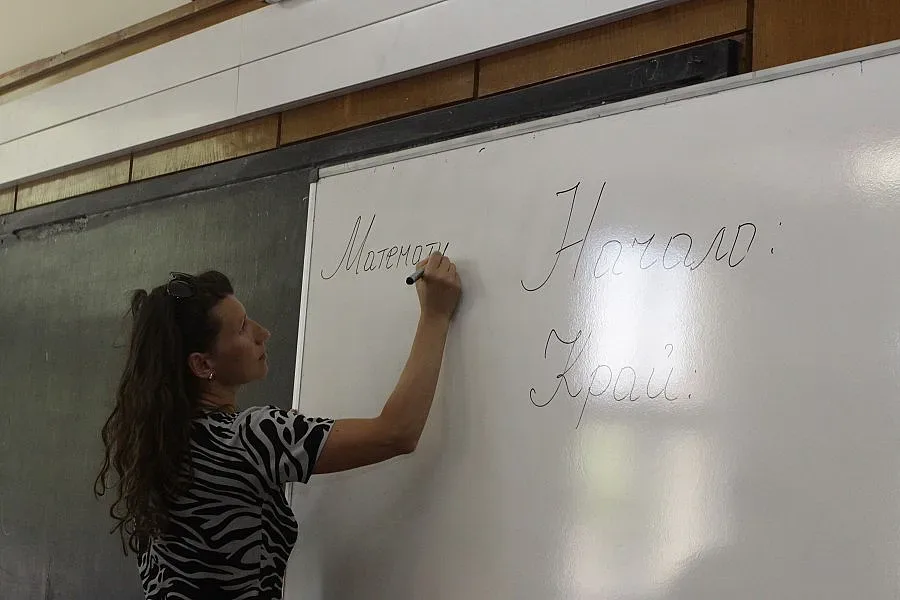 Математи
Начало:
Край: